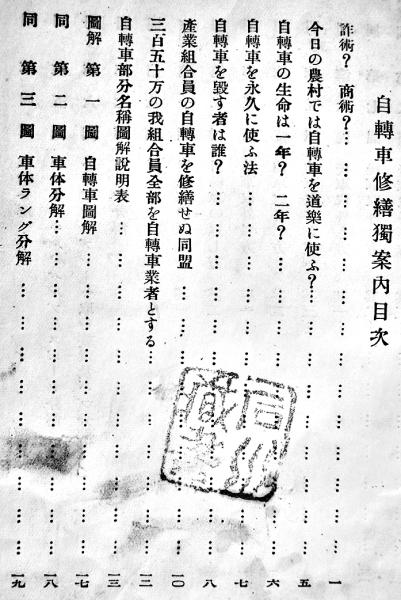 自轉車修繕獨案內目次
詐術? 商術?……………………一
今日の農村では自轉車を道樂に使ふ?……………………五
自轉車の生命は一年? 二年?……………………六
自轉車を永久に使ふ法……………………七
自轉車を毀す者は誰?……………………八
產業組合員の自轉車を修繕せぬ同盟……………………一〇
三百五十万の我組合員全部を自轉車業者とする……………………一二
自轉車部分名稱圖解說明表……………………一三
圖解 第一圖 自轉車圖解……………………一七
同 第二圖 車体分解……………………一八
同 第三圖 車体ラング分解……………………一九
藏書